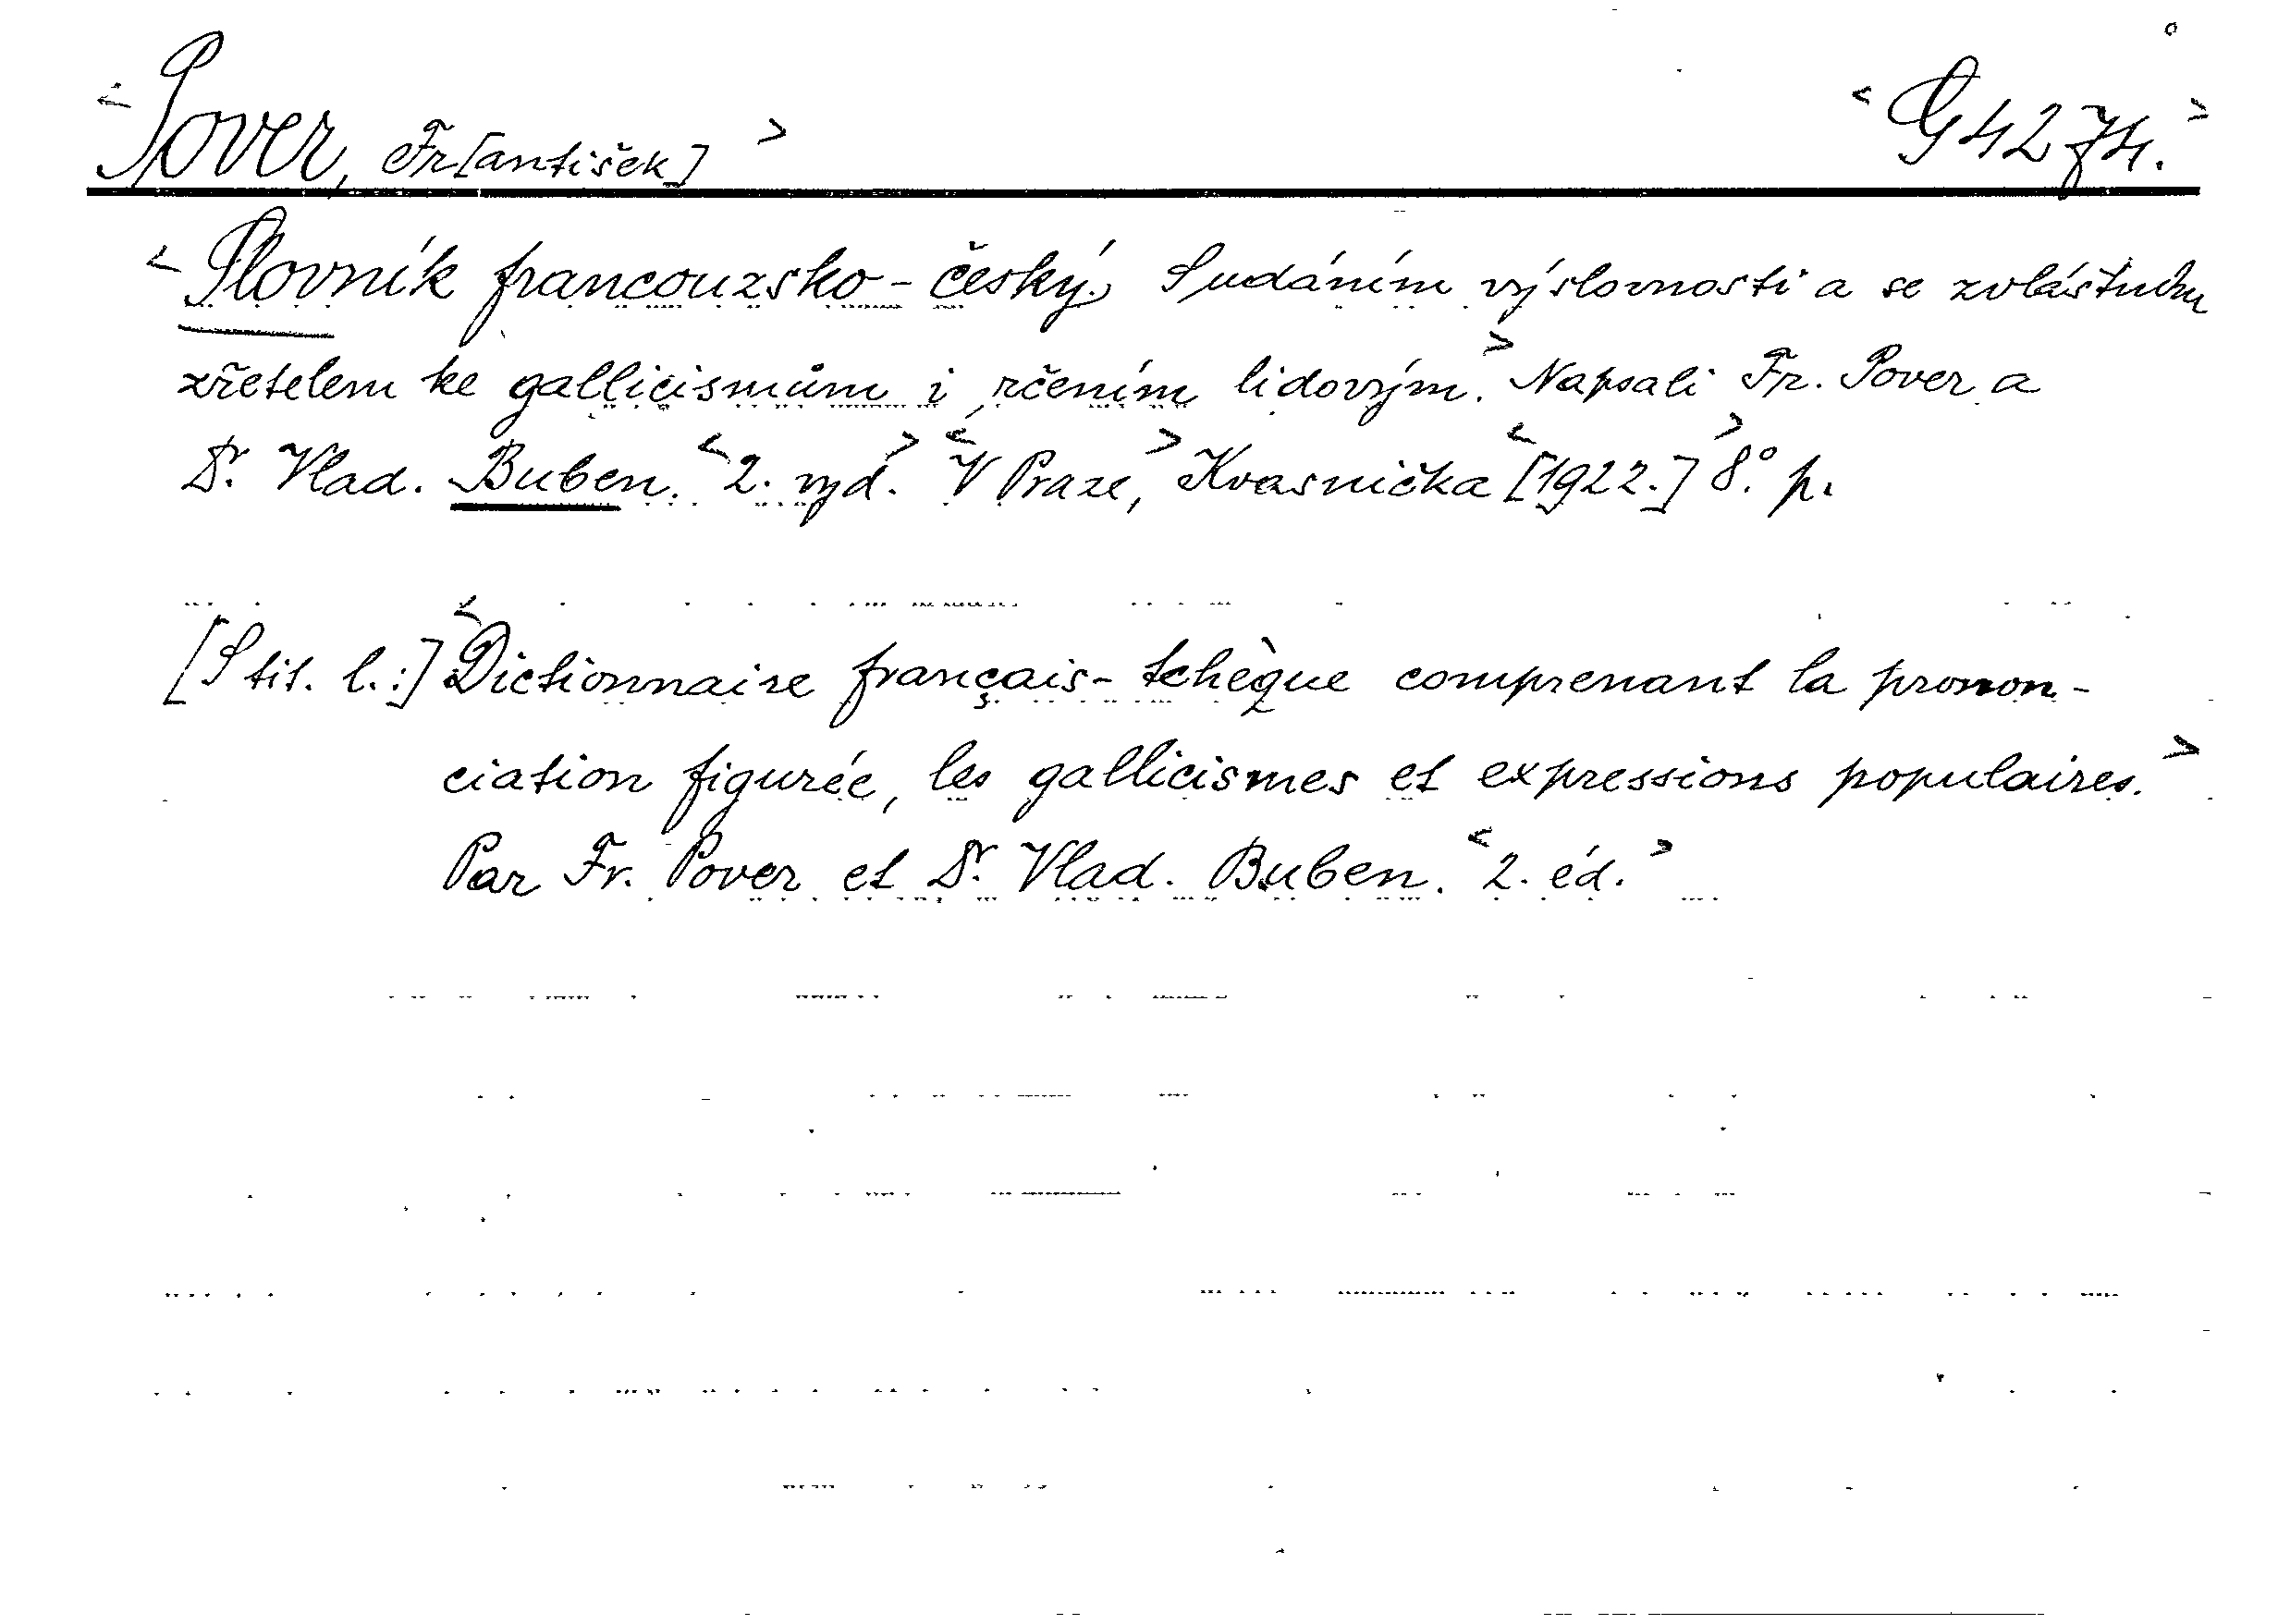 <Pover, Fr[antišek]> <G 4274.>
<Slovník francouzsko-český. S udáním výslovnosti a se zvláštním
zřetelem ke gallicismům i rčením lidovým.> Napsali Fr. Pover a
Dr. Vlad. Buben. <2. vyd.> <V Praze,> Kvasnička <[1922.]> 8°. p.
[S tit. l.:] <Dictionnaire français-tchèque comprenant la pronon-
ciation figurée, les gallicismes et expressions populaires.>
Par Fr. Pover et Dr. Vlad. Buben. <2. éd.>